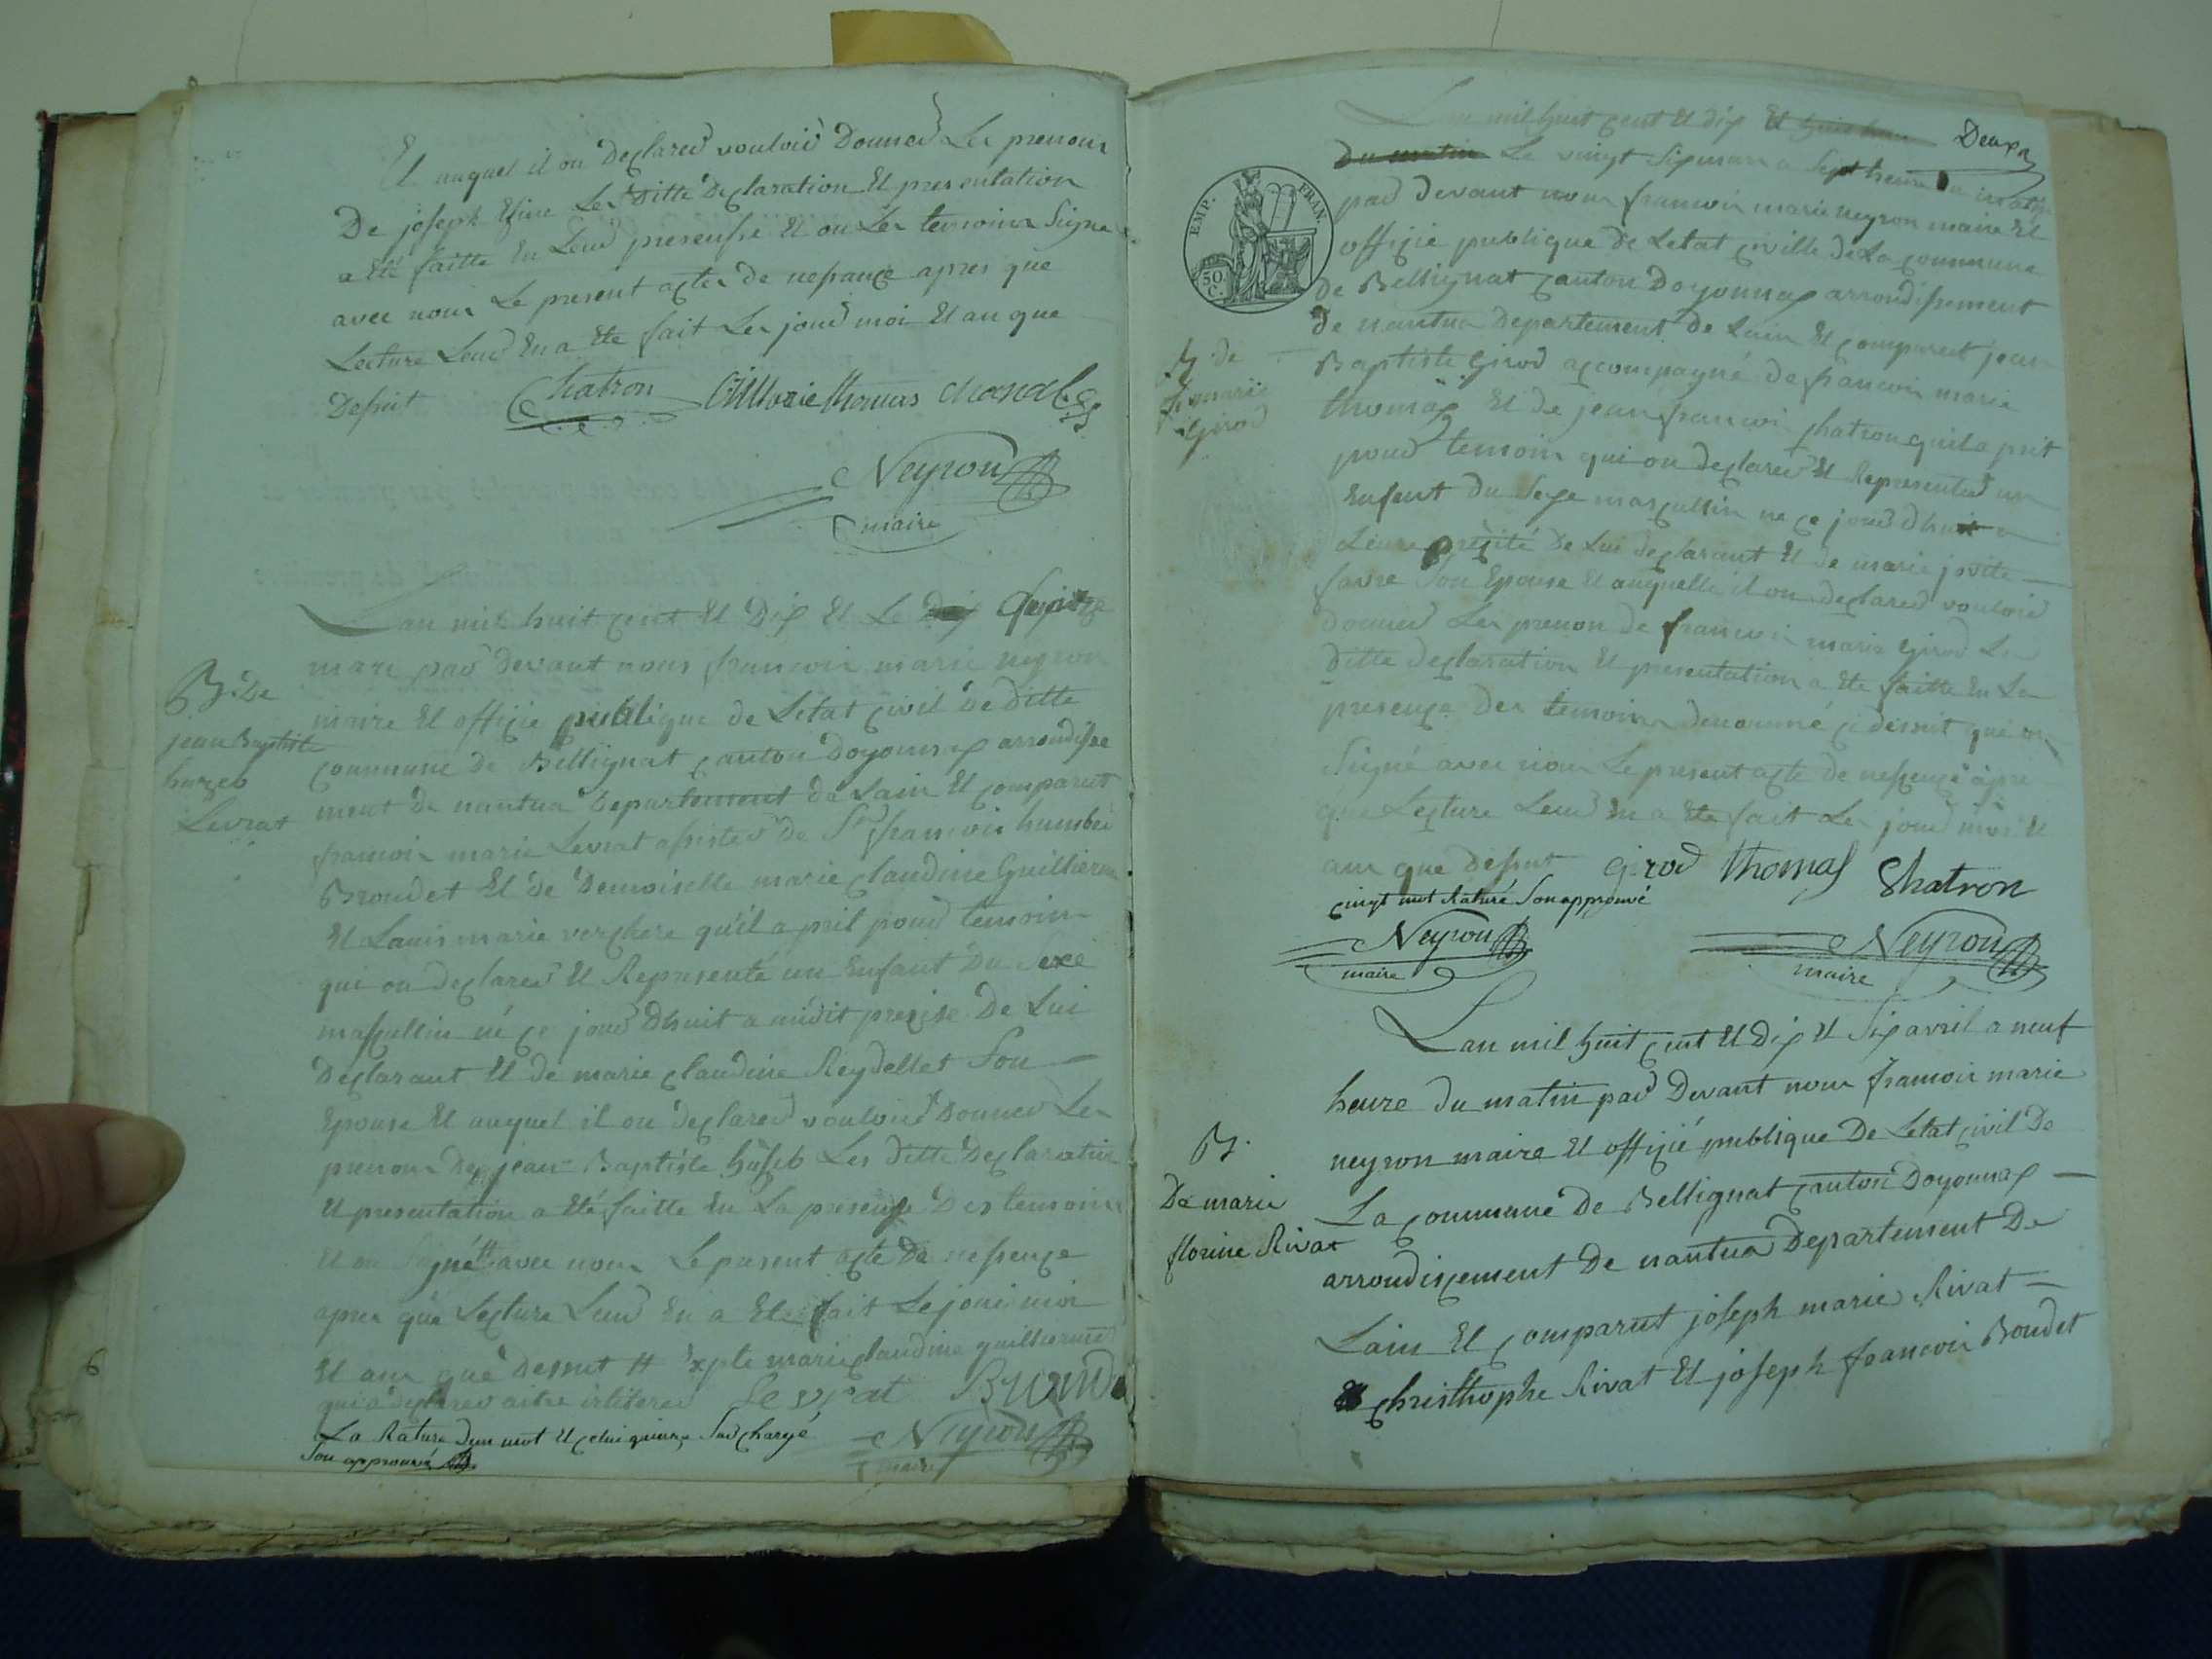 Et auquel il on declared vouloir Donner Les prenoms
De joseph Les ditte Declaration Et presentation
a Eté faitte En Leur presensse Et on Les temoins Signe
avec nous Le present actes de nessance apres que
Lecture Leur En a Ete fait Les jour moi Et an que
Desut Chatron thomas
Neyron
maire
Lan mil huit cent Et Dix Et Le quinze
mars par devant nous francois marie neyron
maire Et officie publique de Letat civil de ditte
commune de Bellignat canton Doyonnax arrondisse
ment de nantua Departement de Lain Et comparut
francois marie Levrat assister de Sr francois humber
Broudet Et de Demoiselle marie claudine Guillierme
Et Louis marie verchere qu'il a prit pour temoin
que on declared Et Representé un Enfant Du Sexe
mascullin né ce jour Dhuit a midit precise De Lui
Declarant Et de marie claudine Reydellet Son
Epouse Et auquel il on declared vouloir Donner Les
prenom De jean Baptiste Les ditte Declaration
Et presentation a Eté faitte En La presence Des temoins
Et on Signé avec nous Le present acte De nessence
apres que Lecture Leur En a Ete fait Le jour moi
Et an que Dessut # marie claudine guillierme
qui a declared Levrat
La Rature dun mot Et celui quinze Surchargé
Son approuvé
Neyron
maire
B. De
jean Baptiste
Levrat
Deux
Lan mil huit cent Et dix Et
du matin Le vingt Six mars a Sept heure du matin
par devant nous francois marie neyron maire Et
officie publique de Letat civille de La commune
de Bellignat canton Doyonnax arrondissement
de nantua Departement de Lain Et comparut jean
Baptiste Girod accompagné de francois marie
thomas Et de jean francois chatron quil a prit
pour temoin qui on declared Et Representer un
Enfent du Sexe mascullin ne ce jour dhuit a
de Lui declarant Et de marie
favre Son Epouse Et auquelle il on declared vouloir
donner Les prenon de francois marie Girod Les
ditte declaration Et presentation a Ete faitte En La
presence des temoins denommé ci dessut que on
Signé avec nous Le present acte de nessence apre
que Lecture Leur En a Ete fait Les jour moi Et
an que dessut Girod thomas Chatron
vingt mot Raturé Son approuvé
Neyron
maire
Neyron
maire
EMP. FRAN.
50
C.
B. de
marie
Girod
Lan mil huit cent Et dix Et Six avril a neuf
heure du matin par Devant nous francois marie
neyron maire Et officié publique De Letat civil De
La commune De Bellignat canton Doyonnax
arrondicement De nantua Departement De
Lain Et comparut joseph marie Rivat
christhophe Rivat Et joseph francois Boudet
B.
De marie
florine Rivat